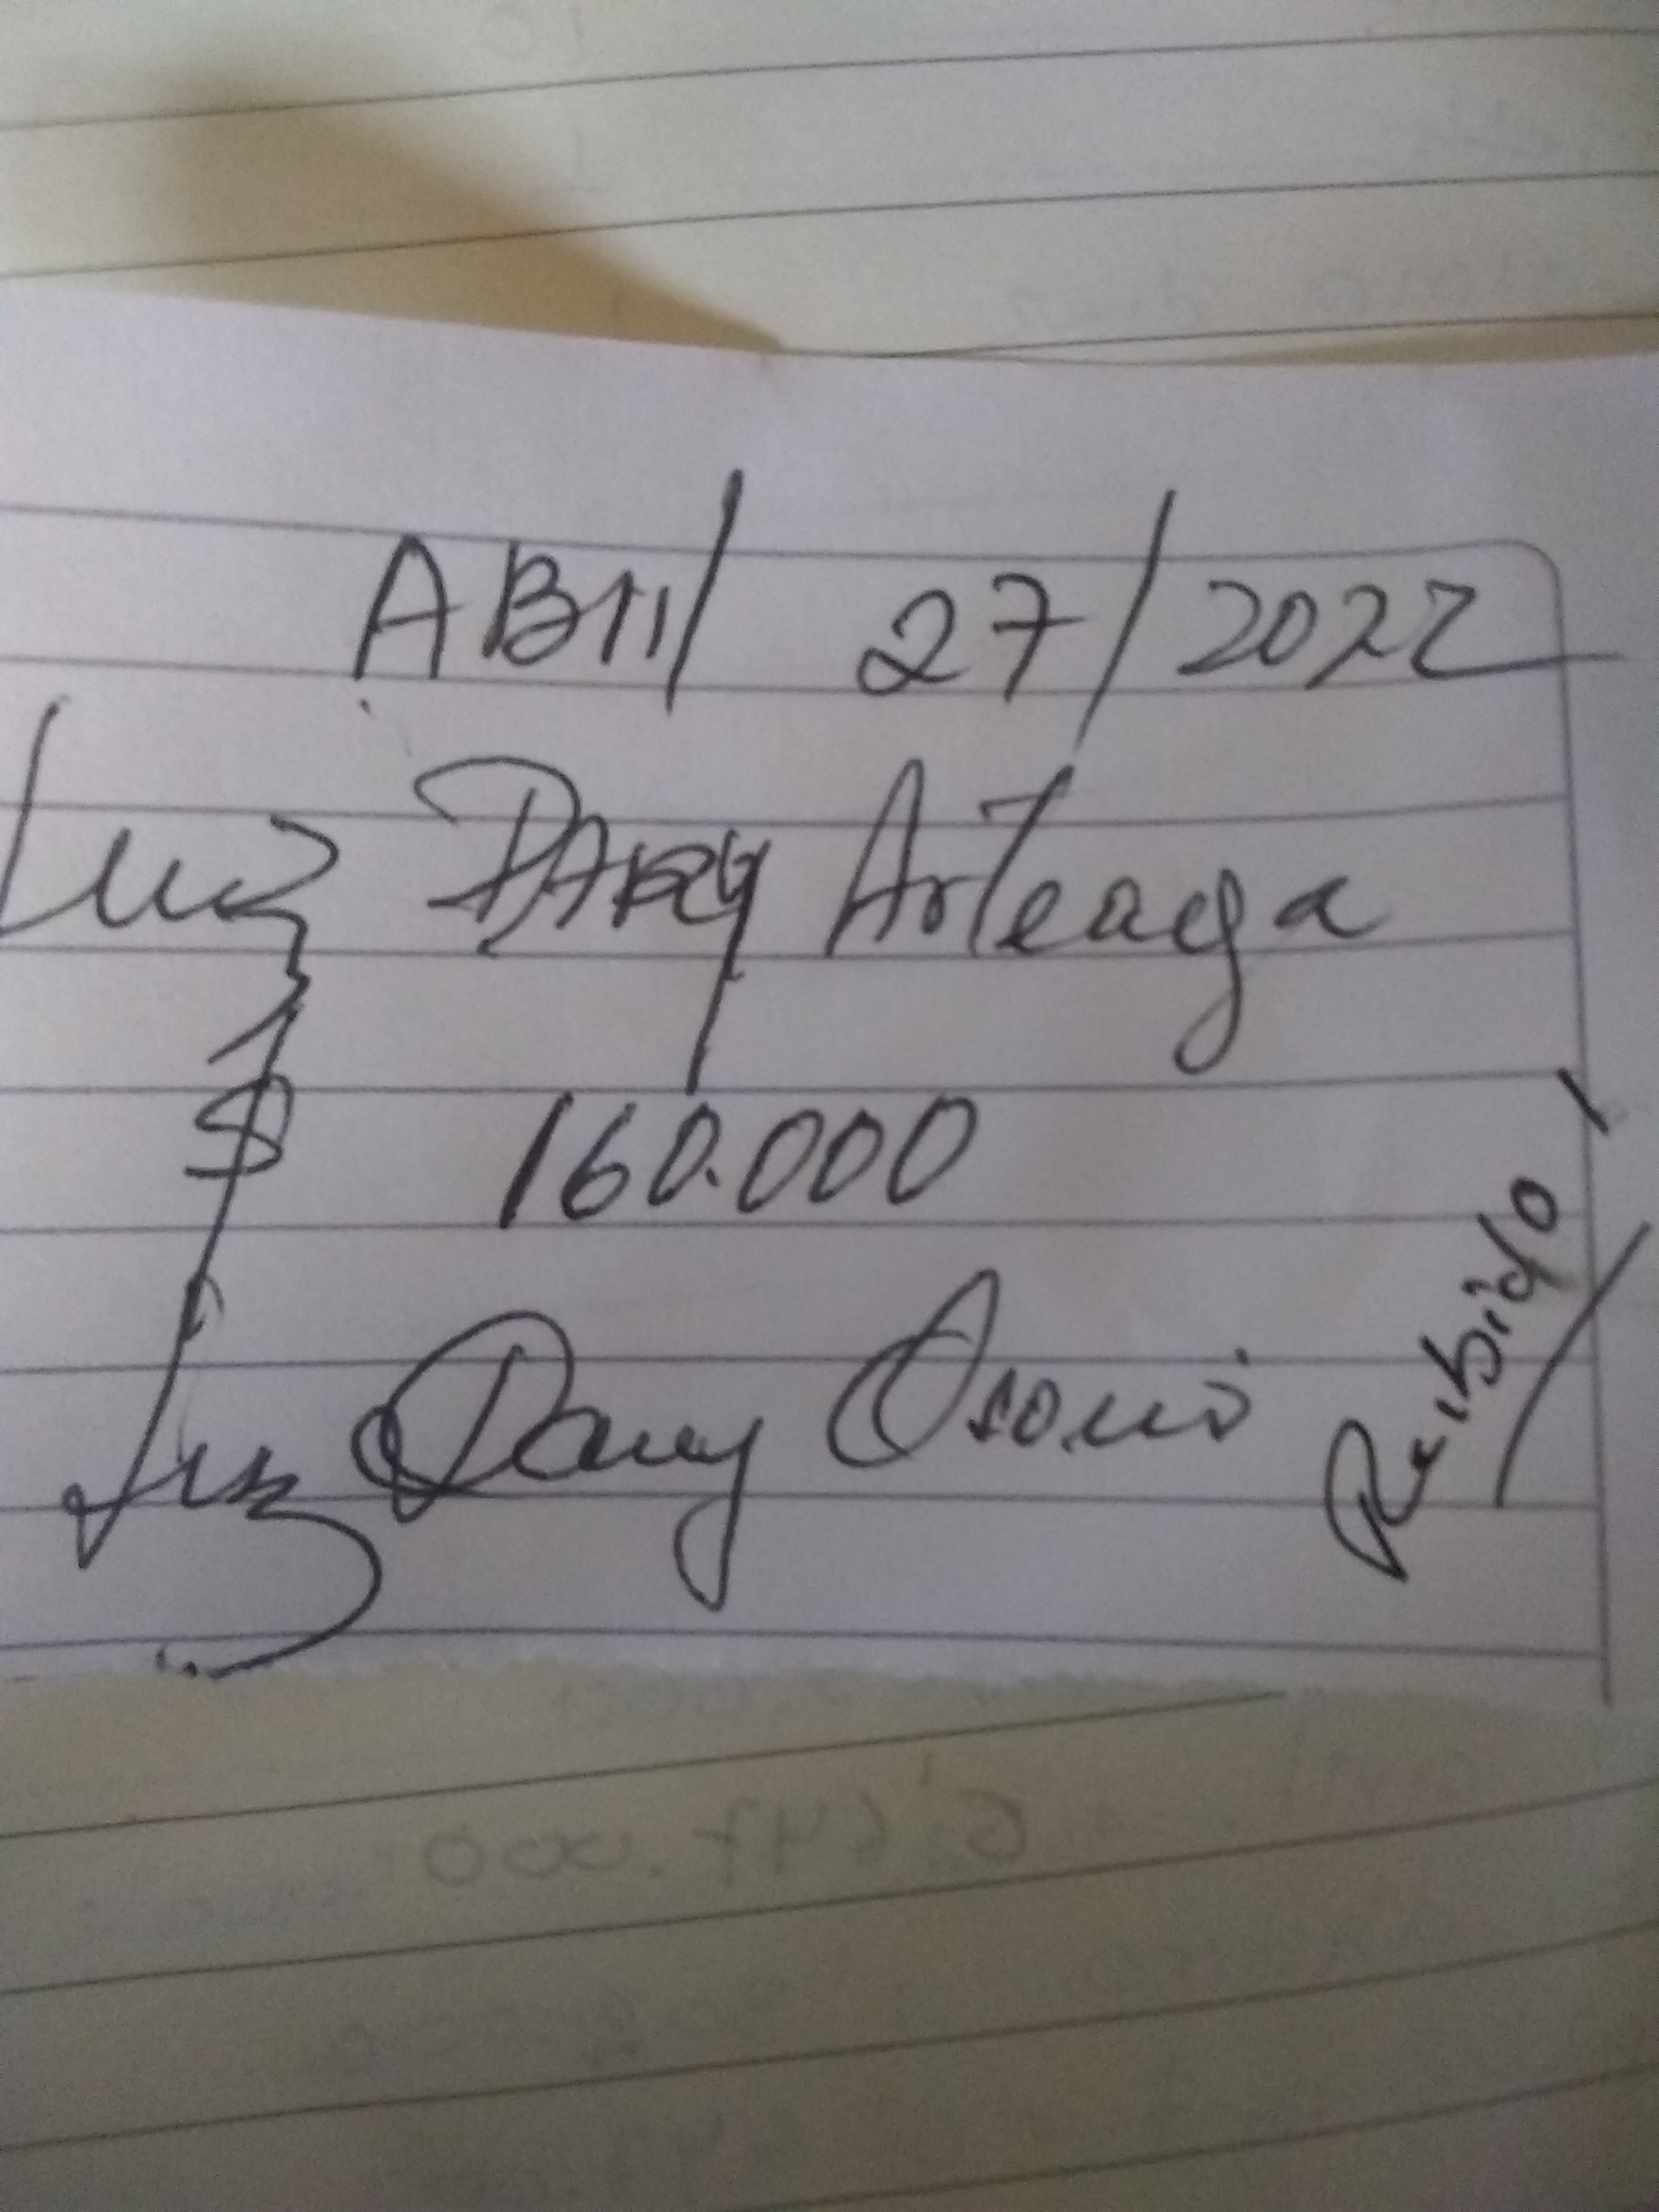 ABril 27/2022
Luz DARy Arteaga
$ 160.000
Luz Dary Osorio
Recibido